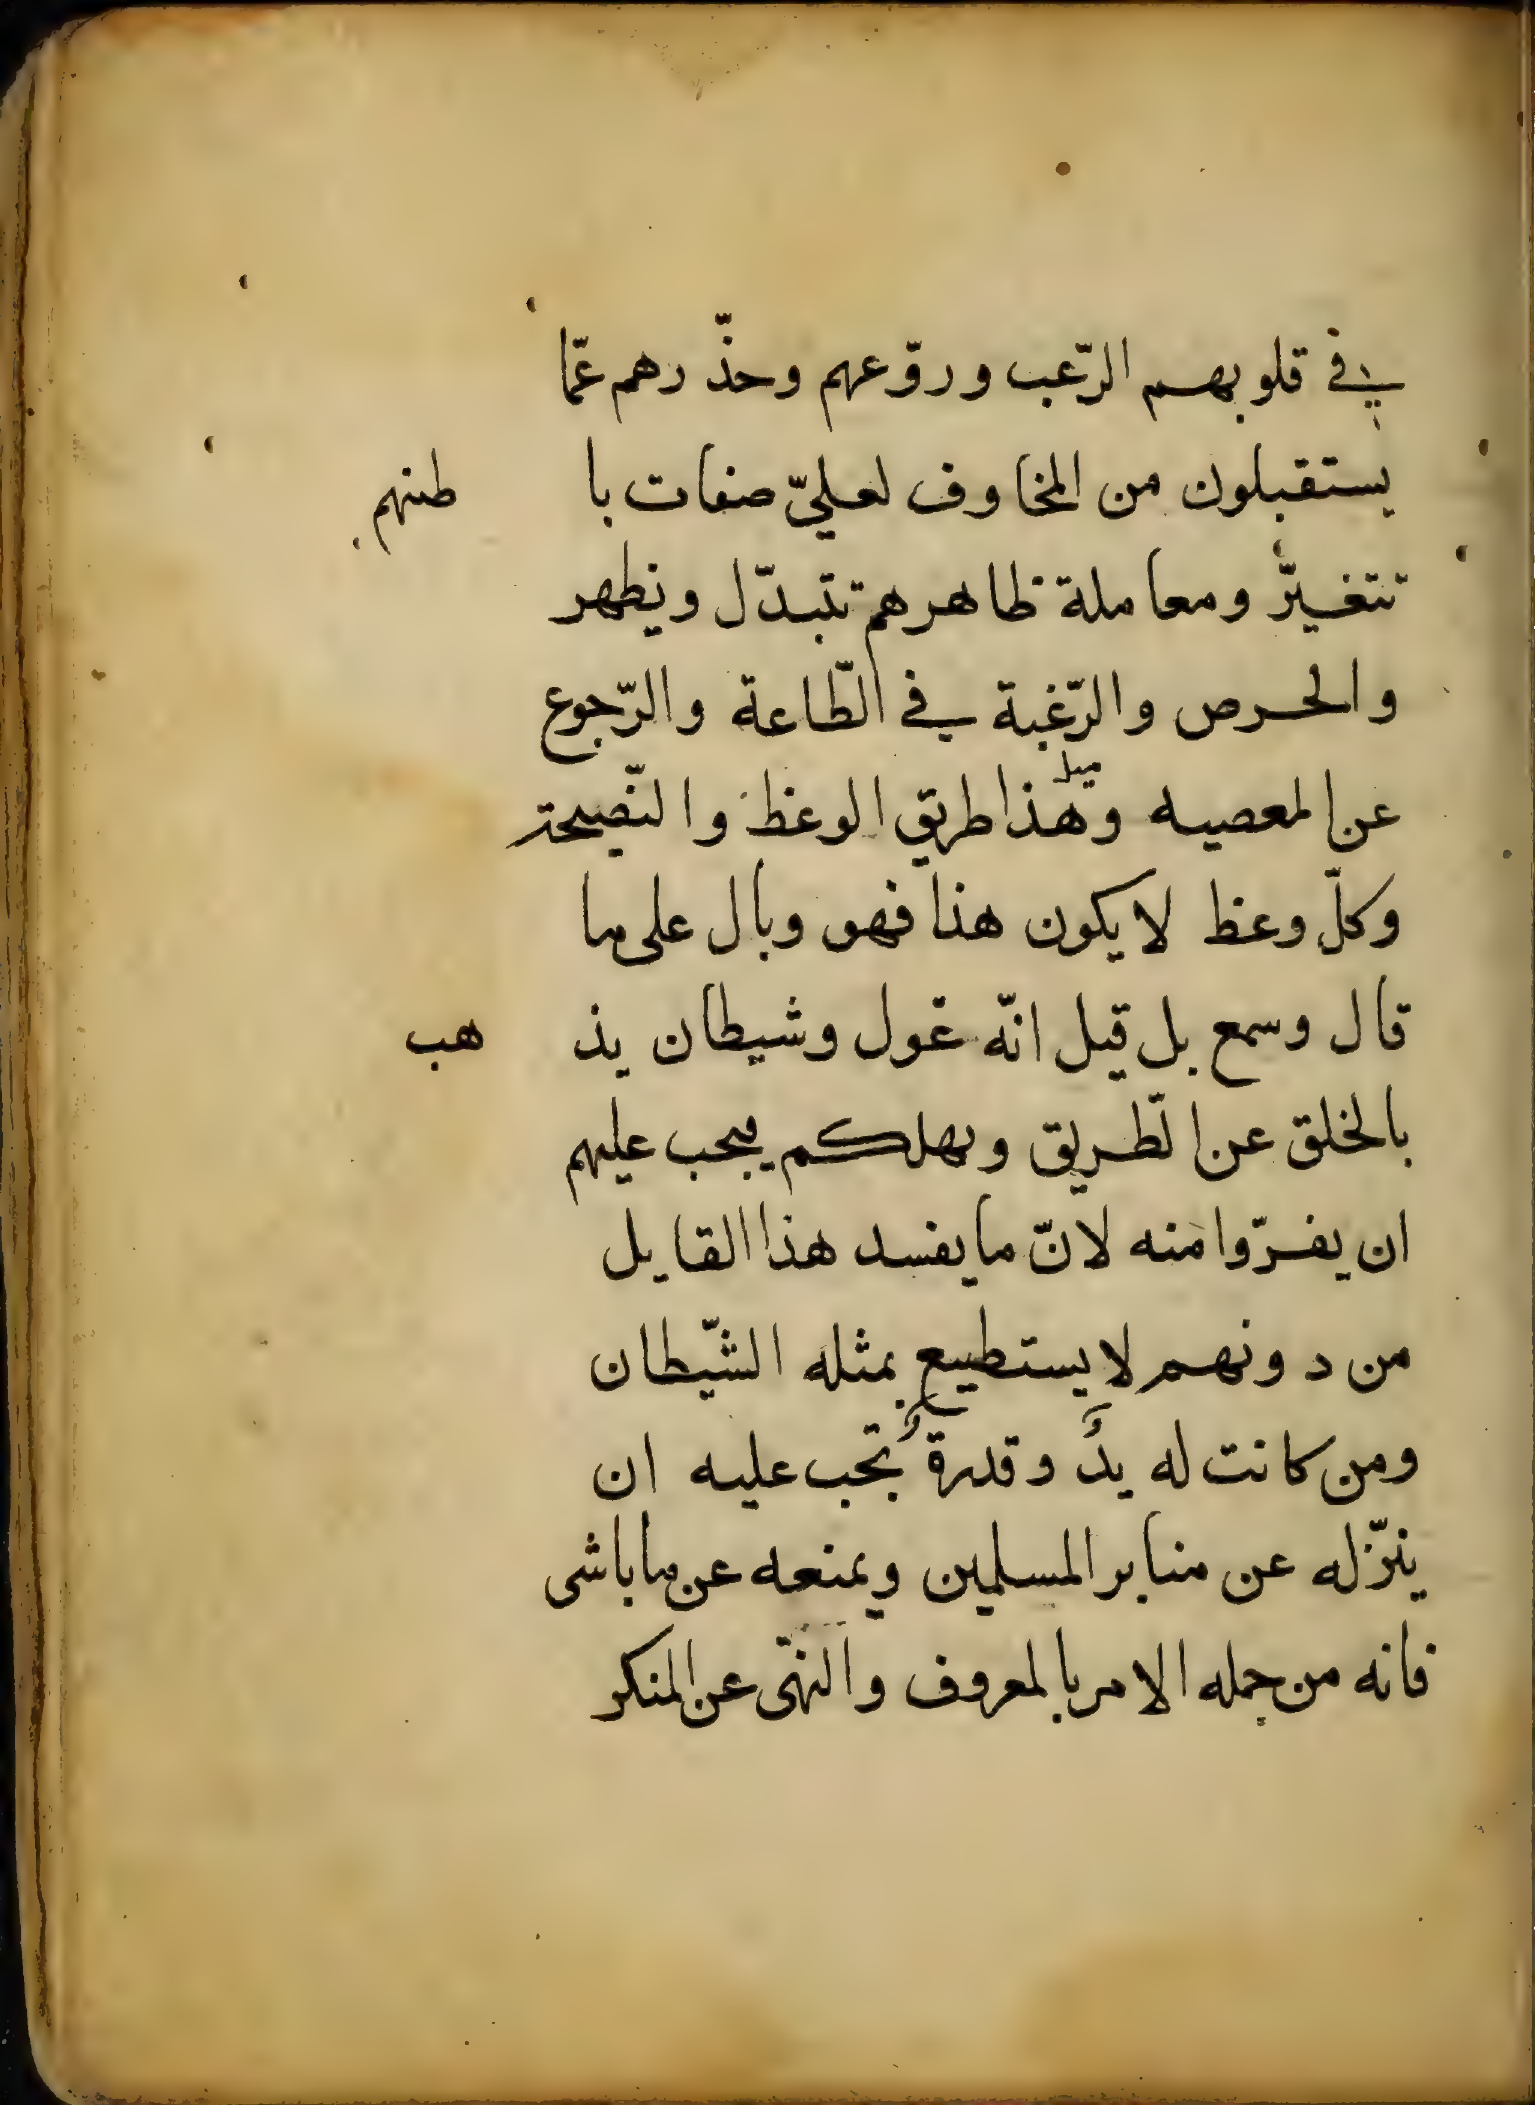 في قلوبهم الرّعب وروّعهم وحذّرهم عمّا
يستقبلون من المخاوف لعليّ صفات باطنهم
تتغيّر ومعاملة ظاهرهم تتبدّل ويظهر
والحرص والرّغبة في الطّاعة والرّجوع
عن المعصيه وهّذا طريق الوعظ والنّصيحة
وكلّ وعظ لا يكون هذا فهو وبال على ما
قال وسمع بل قيل انّه غول وشيطان يذهب
بالخلق عن الطّريق ويهلكم فيجب عليهم
ان يفرّوا منه لانّ ما يفسد هذا القايل
من دونهم لا يستطيع بمثله الشّيطان
ومن كانت له يدٌ وقدرةٌ تجب عليه ان
ينزّله عن منابر المسلمين ويمنعه عن ما باشى
فانه من جمله الامر بالمعروف والنّهى عن المنكر